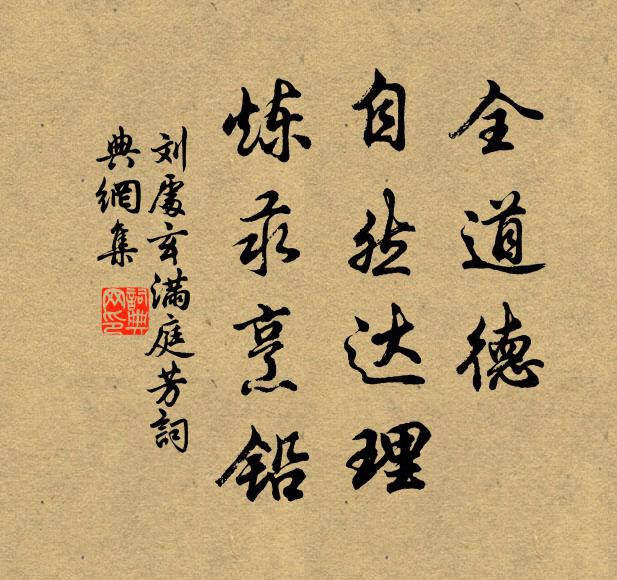 全道德
自然达理
炼汞烹铅
刘處玄满庭芳詞
典網集
詞典
网印